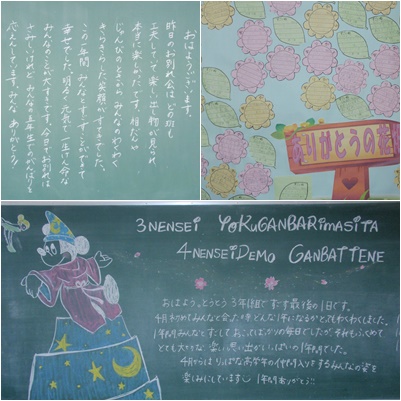 おはようございます。
昨日のお別れ会は、どの班も
工夫していて楽しい出し物が見られ、
本当に楽しかったです。相だんや
じゅんびのときからみんなのわくわく
きらきらした笑顔がすてきでした。
この一年間みんなとすごすことができて
幸せでした。明るく元気で一生けん命な
みんなのことが大すきです。今日でお別れは
さみしいけれど、みんなの五年生でのがんばりを
応えんしています。みんなありがとう!
ありがとうの花
3NENSEI YOKUGANBARIMASITA
4NENSEIDEMO GANBATTENE
おはよう。とうとう3年1組ですごす最後の1日です。
4月初めてみんなと会った時どんな1年になるかとてもわくわくしました。
1年間みんなとすごして、おこってばかりの毎日でしたが、それもふくめて
とても大切な、楽しい思い出がいっぱいの1年間でした。
4月からはりっぱな高学年の仲間入りをするみんなの姿を
楽しみにしています 1年間ありがとう!!